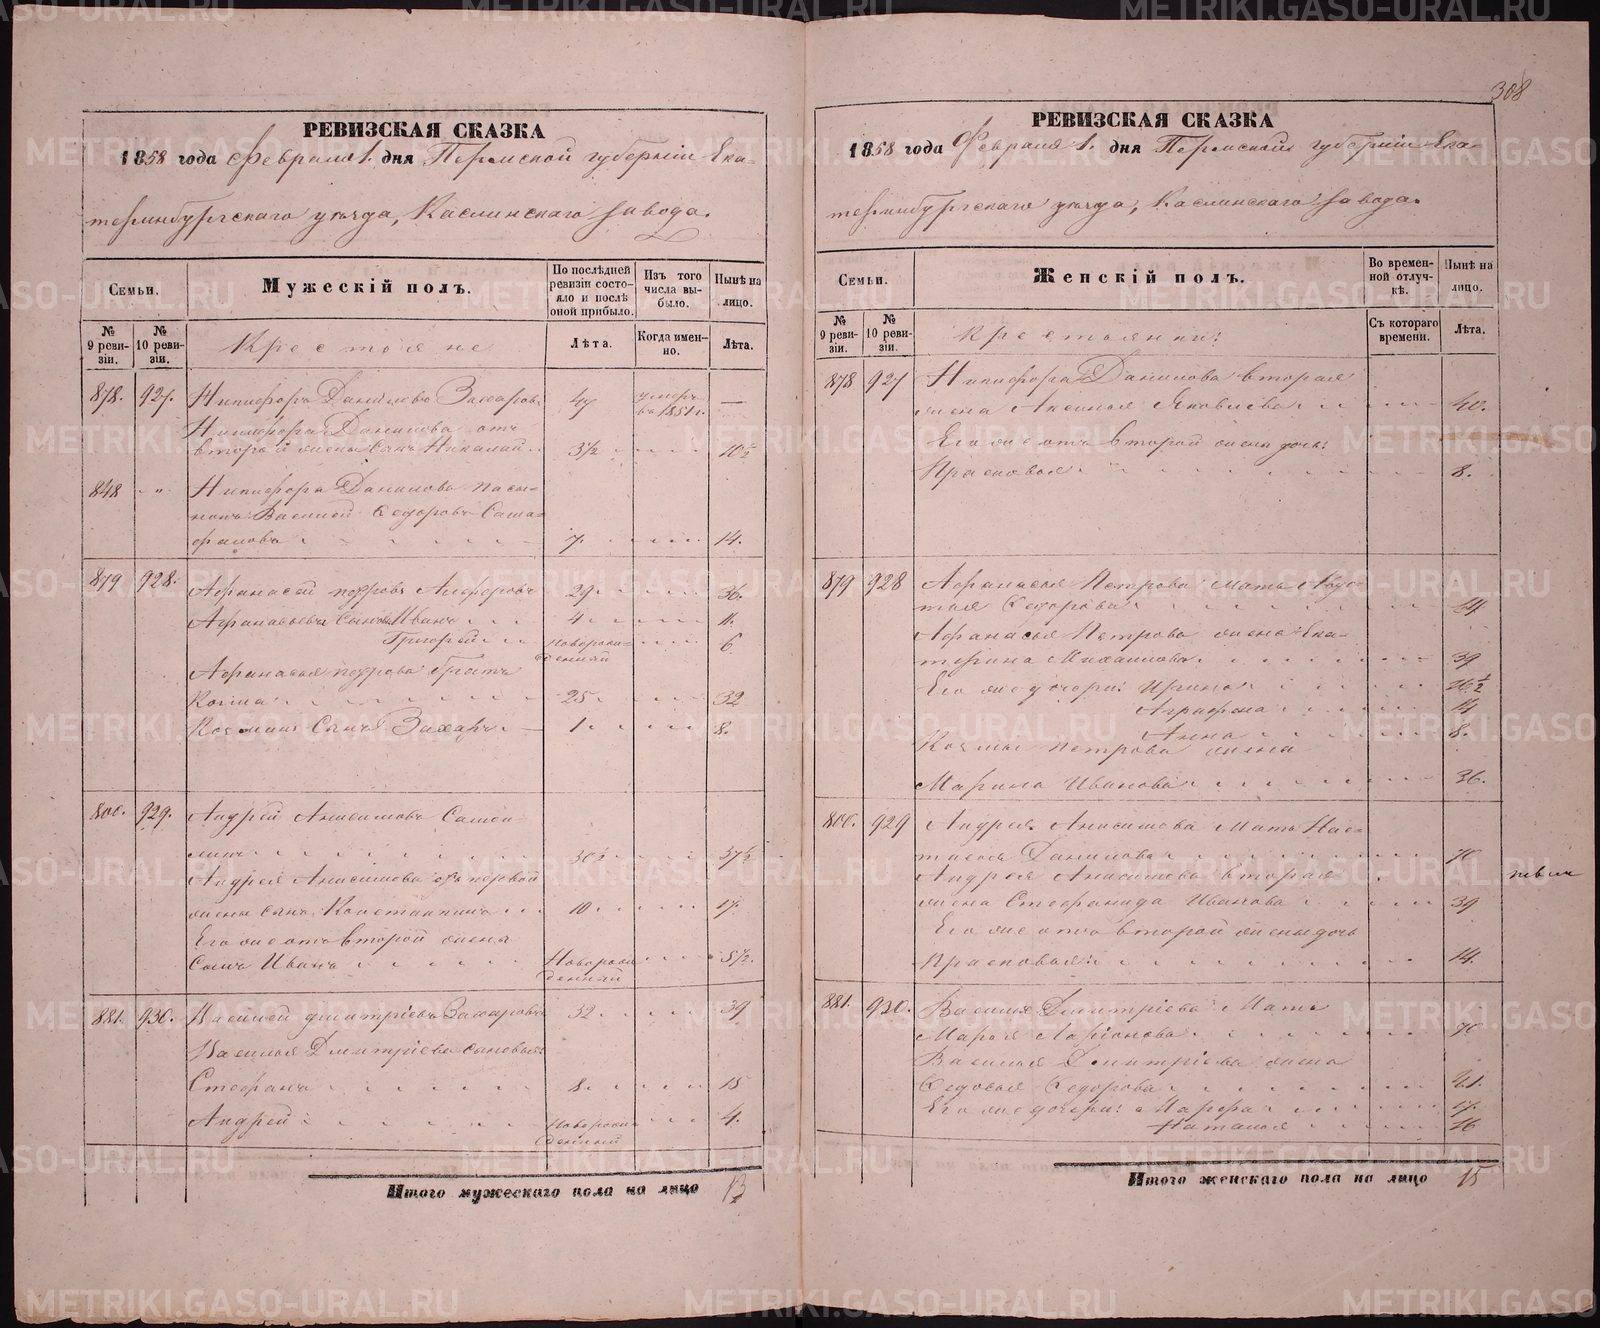 308
РЕВИЗСКАЯ СКАЗКА
1858 года Февраля 1. дня Пермской губернiи Ека-
теринбургскаго уѣзда, Каслинскаго завода.
Семьи.
Мужескiй полъ.
По послѣдней ревизiи состояло и послѣ оной прибыло.
Изъ того числа выбыло.
Нынѣ на лицо.
№ 9 ревизiи.
№ 10 ревизiи.
Крестьяне
Лѣта.
Когда именно.
Лѣта.
878. 927. Никифоръ Даниловъ Захаровъ 47 умеръ въ 1851 г. —
Никифора Данилова отъ
второй жены сынъ Николай 3½ 10½
848 „ Никифора Данилова пасы-
нокъ Василей Федоровъ
7. 14.
879 928. Афанасей Петровъ Алферовъ 29 36.
Афанасьевы сыновья Иванъ 4 11.
Григорей новорожденный 6
Афанасья Петрова братъ
Козма 25 32
Козмы сынъ Захаръ 1. 8.
880. 929. Андрей Анисимовъ
30½ 37½
Андрея Анисимова отъ первой
жены сынъ Константинъ 10 17.
Его же отъ второй жены
сынъ Иванъ Новорожденный 5½.
881. 930. Василей Дмитрiевъ Захаровъ 32 39
Василья Дмитрiева сыновья:
Стефанъ 8. 15
Андрей Новорожденный 4.
Итого мужескаго пола на лицо 13
РЕВИЗСКАЯ СКАЗКА
1858 года Февраля 1. дня Пермской губернiи Ека-
теринбургскаго уѣзда, Каслинскаго завода.
Семьи.
Женскiй полъ.
Во временной отлучкѣ.
Нынѣ на лицо.
№ 9 ревизiи.
№ 10 ревизiи.
Крестьянки:
Съ котораго времени.
Лѣта.
878 927 Никифора Данилова вторая
жена Аксинья Яковлева 40.
Его же отъ второй жены дочь:
Прасковья 8.
879 928 Афанасья Петрова мать
Федорова
Афанасья Петрова жена Ека-
терина Михайлова 39
Его же дочери: Ирина 16½
Аграфена 14
Анна 8.
Козмы Петрова жена
Марина Иванова 36.
880. 929 Андрея Анисимова мать Нас-
тасья Данилова 70
Андрея Анисимова вторая
жена Стефанида Иванова 39
Его же отъ второй жены дочь
Прасковья 14.
881. 930. Василья Дмитрiева мать
Марья Ларiонова 70
Василья Дмитрiева жена
Федосья Федорова 41.
Его же дочери: Марфа 17.
Наталья 16
Итого женскаго пола на лицо 15
METRIKI.GASO-URAL.RU